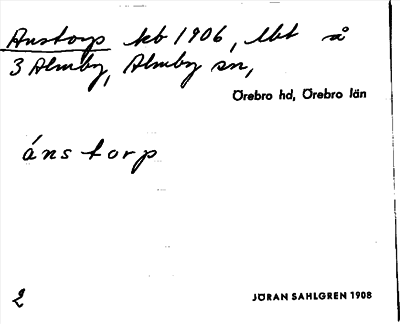 Anstorp kb 1906, lht å
3 Almby, Almby sn,
Örebro hd, Örebro län
ánstorp
2
JÖRAN SAHLGREN 1908